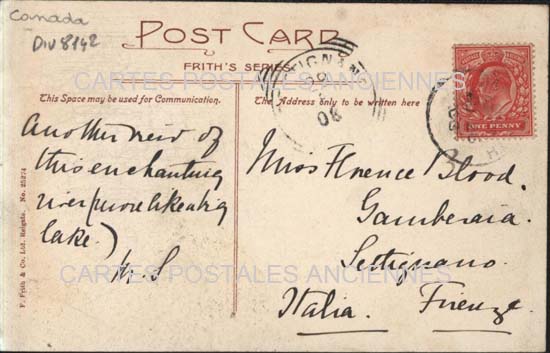 Canada
Div 8142
POST CARD
FRITH'S SERIES
CARTES POSTALES ANCIENNES
This Space may be used for Communication.
The Address only to be written here
SETTIGNANO
08
ONE PENNY
Another view of
this enchanting
river (more like a big
lake.)
Miss Florence Blood.
Gamberaia.
Settignano.
Italia. Firenze.
CARTES POSTALES ANCIENNES
F. Frith & Co. Ltd., Reigate. No. 25274